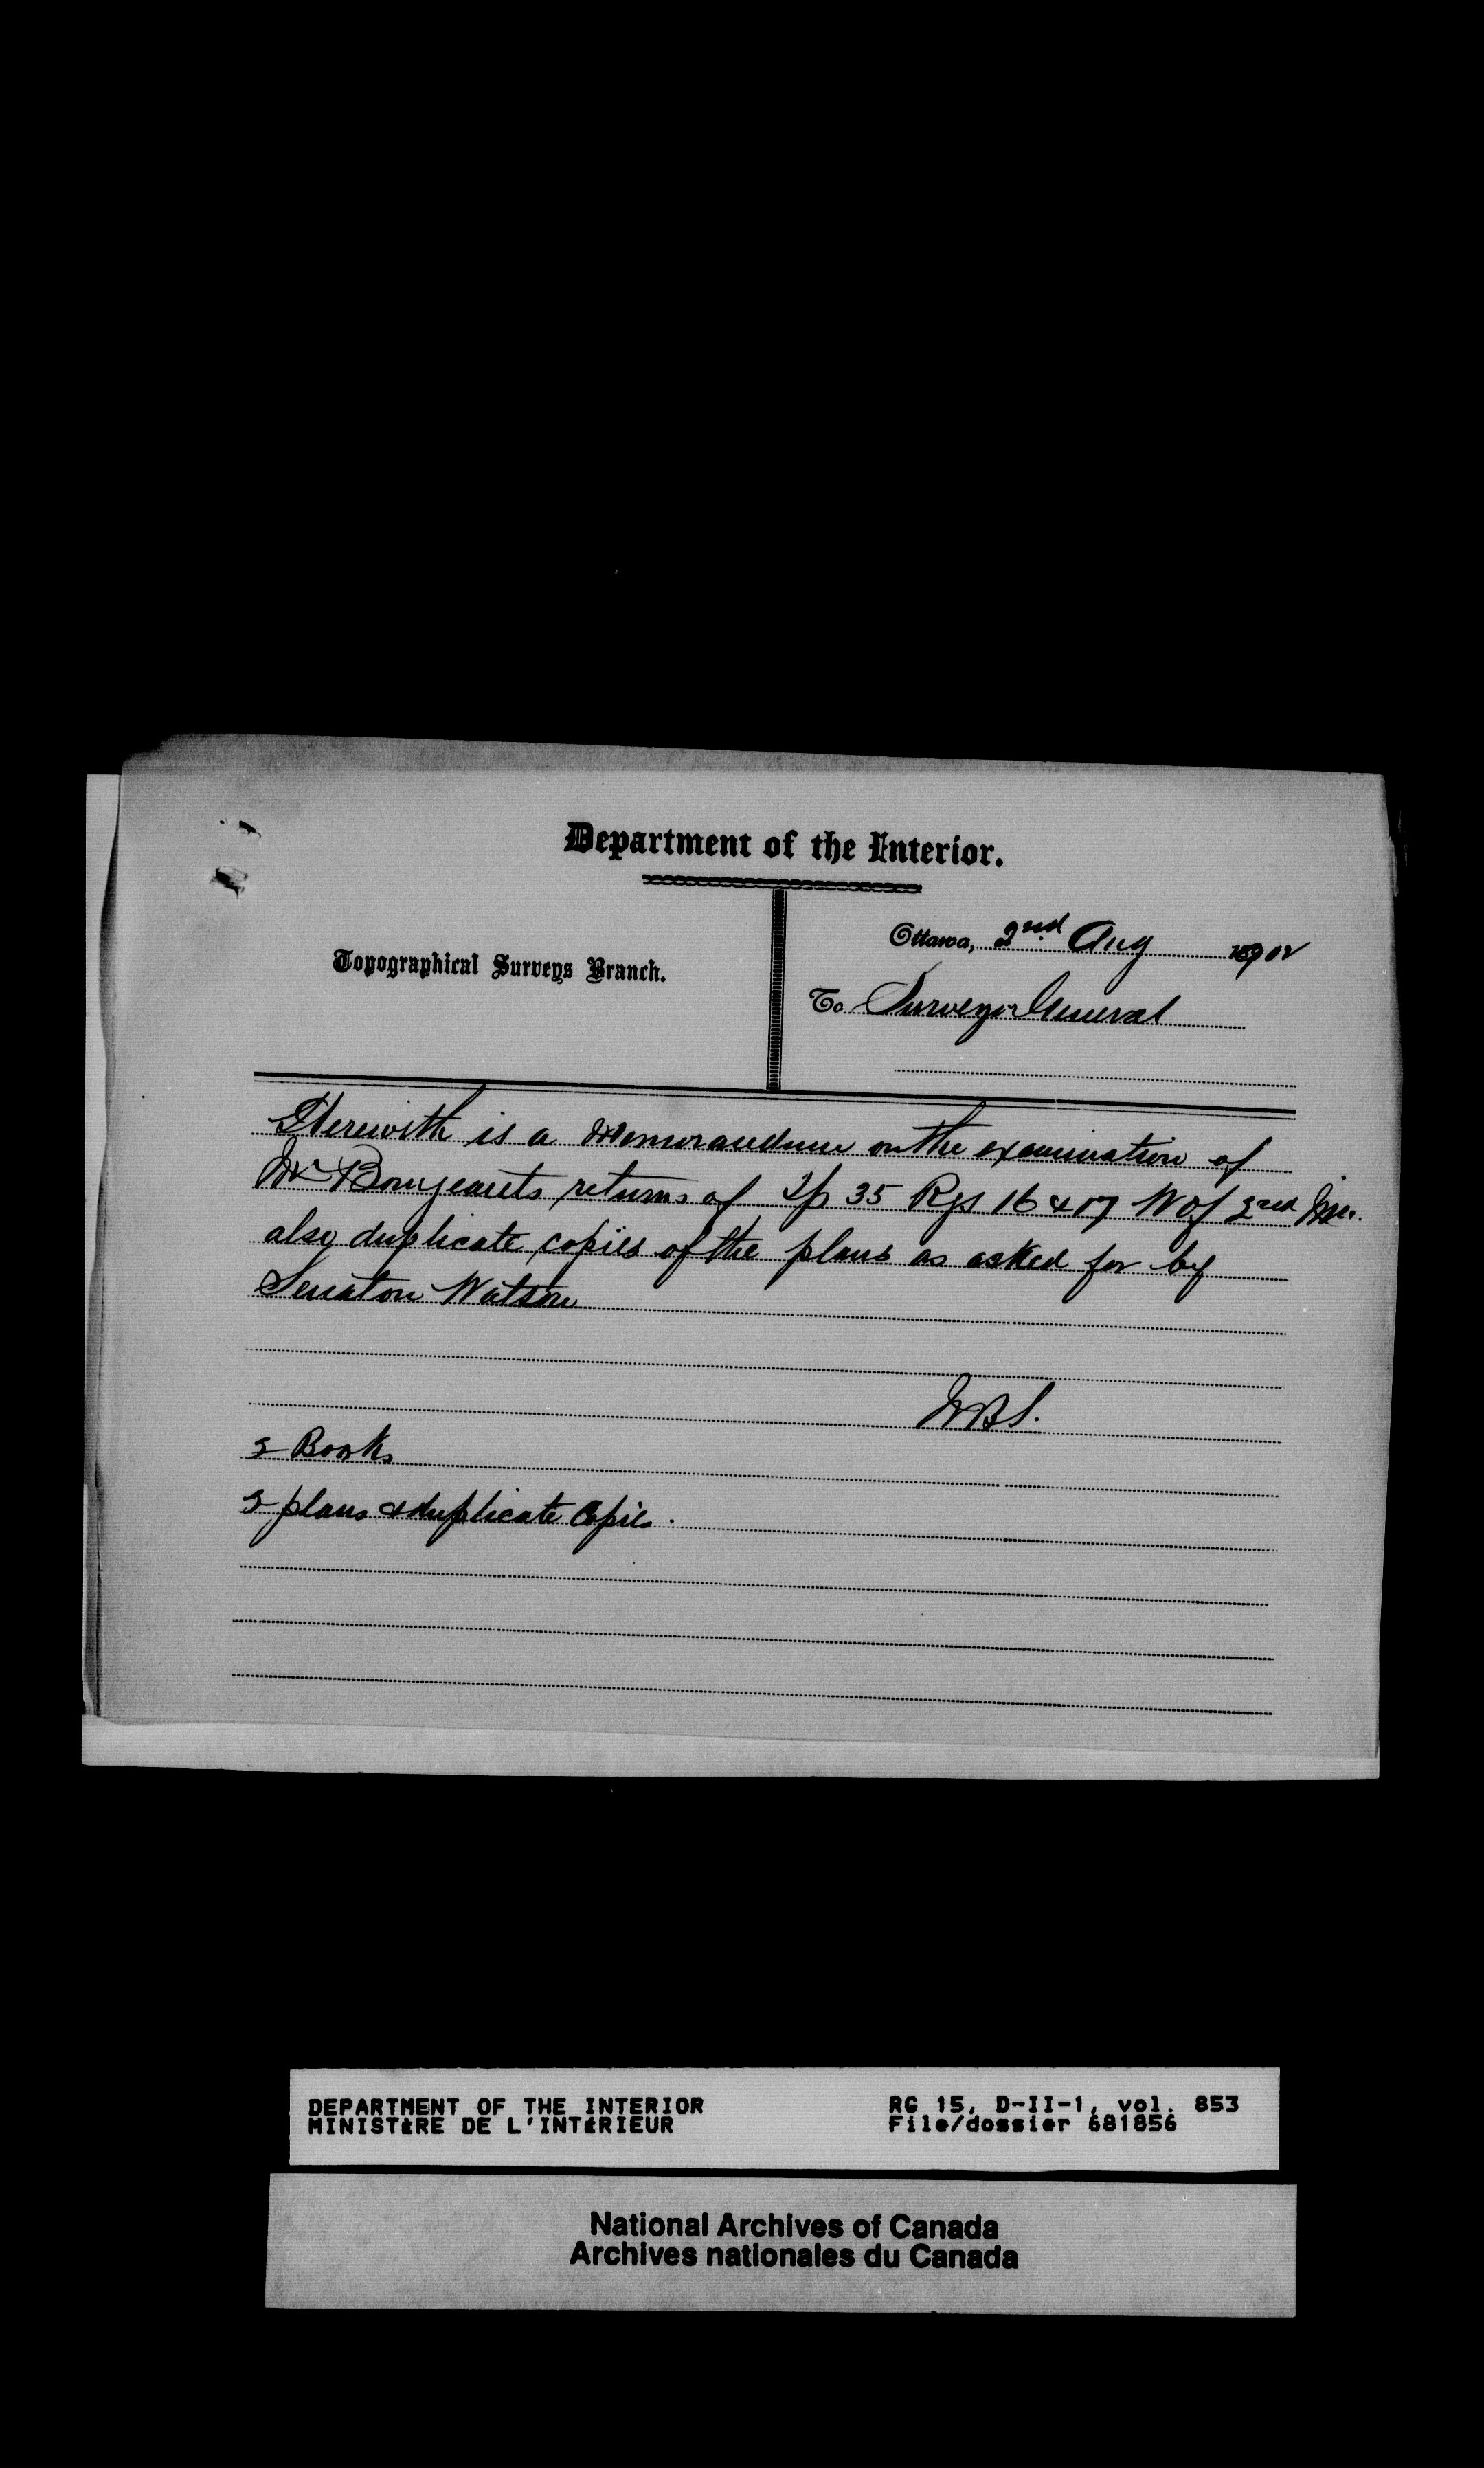 Department of the Interior.
Topographical Surveys Branch.
Ottawa, 2nd Aug 1902
To Surveyor General
Herewith is a memorandum on the examination of
Mr Bourgeault's returns of Tp 35 Rgs 16 & 17 W of 2nd Mer.
also duplicate copies of the plans as asked for by
Senator Watson
2 Books
2 plans & duplicate Copies.
DEPARTMENT OF THE INTERIOR
MINISTÈRE DE L'INTÉRIEUR
RG 15, D-II-1, vol. 853
File/dossier 681856
National Archives of Canada
Archives nationales du Canada